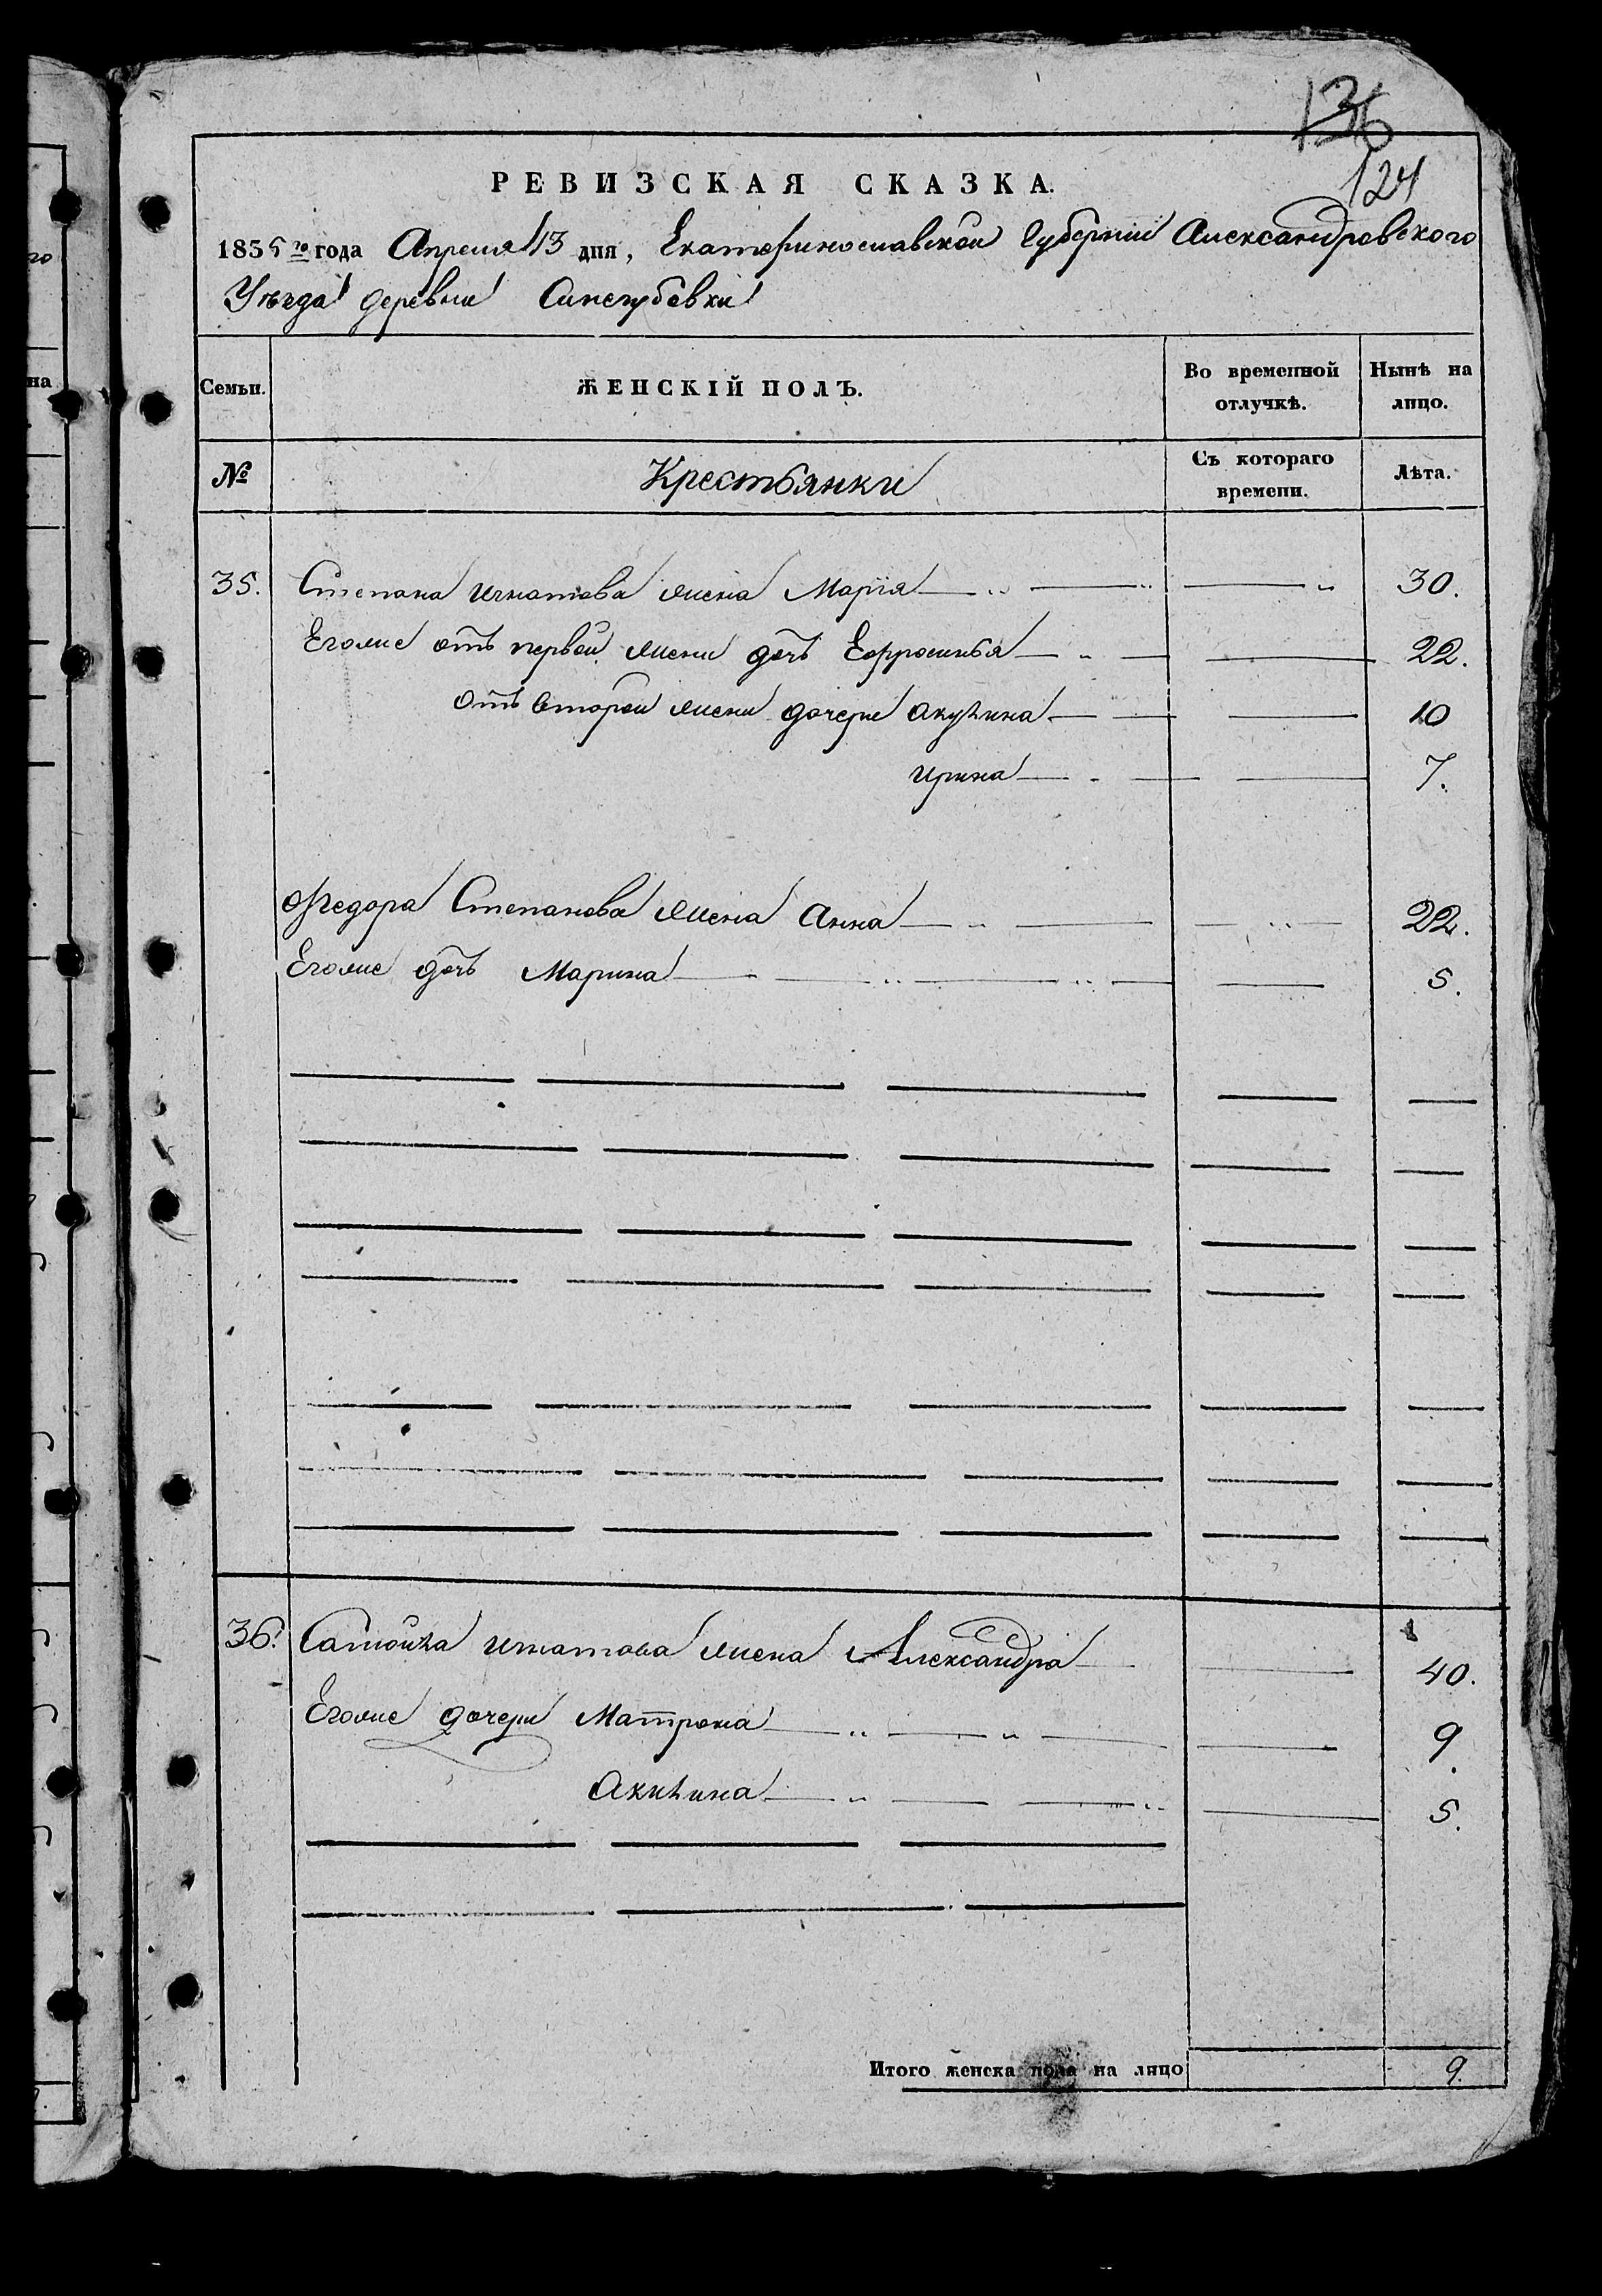 136
124
РЕВИЗСКАЯ СКАЗКА.
1855 го года Апреля 13 дня, Екатеринославской Губернии Александровского
Уѣзда деревни Синегубовки
Семьи. ЖЕНСКІЙ ПОЛЪ. Во временной отлучкѣ. Нынѣ на лицо.
№ Крестьянки Съ котораго времени. Лѣта.
35. Степана Игнатова жена Марія 30.
Егоже отъ первой жены дочь Ефросинья 22.
отъ второй жены дочери Акулина 10
Ирина 7.
Федора Степанова жена Анна 22.
Егоже дочь Марина 5.
36. Самойла Игнатова жена Александра 40.
Егоже дочери Матрона 9.
Акилина 5.
Итого женска пола на лицо 9.